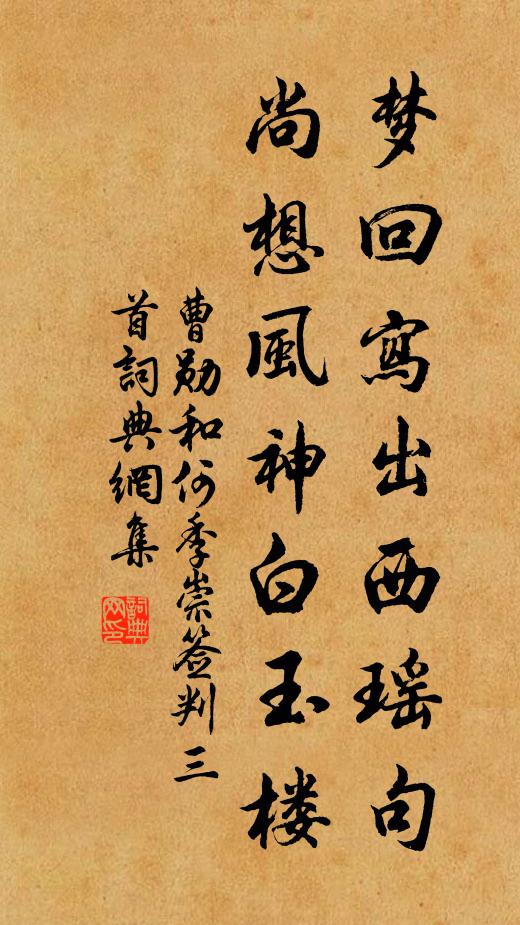 梦回寫出西瑶句
尚想風神白玉楼
曹勋和何季崇签判三
首詞典網集
詞典
网印